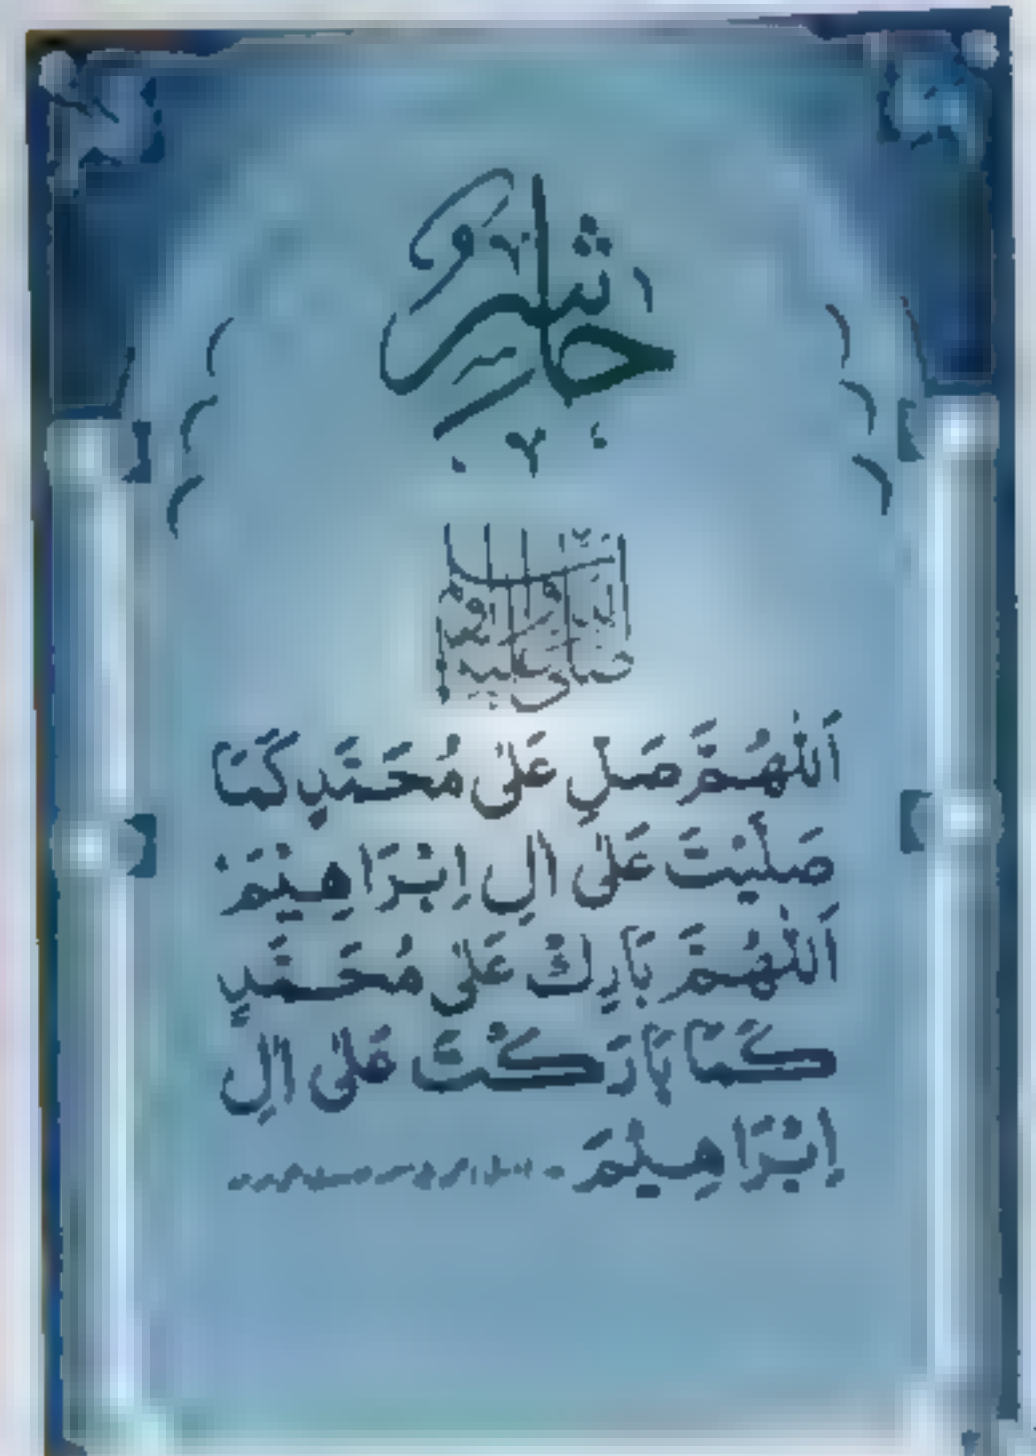 حَاشِرٌ
صلى الله عليه وآله وسلم
اَللّٰهُمَّ صَلِّ عَلٰی مُحَمَّدٍ كَمَا
صَلَّیْتَ عَلٰی اٰلِ اِبْرَاهِیْمَ
اَللّٰهُمَّ بَارِكْ عَلٰی مُحَمَّدٍ
كَمَا بَارَكْتَ عَلٰی اٰلِ
اِبْرَاهِیْمَ